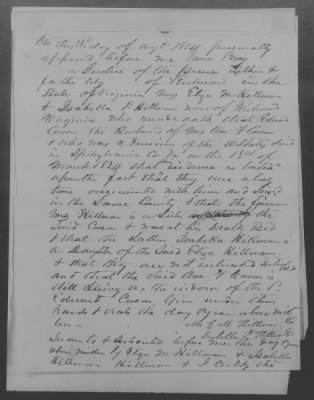 On this day of Augt 1854 personally
appeared before me
a Justice of the Peace within &
for the City of Richmond in the
State of Virginia Mrs Eliza M Hillman
& Isabella Hillman now of Richmond
Virginia who make oath that Edward
Cason the Husband of Mrs Ann Cason
& who was a Pensioner of the U States died
in Spotsylvania Co Va on the 13th of
March that is
upon the fact that they were a long
time acquainted with him and lived
in the Same County & that the former
Mrs Hillman is a Sister the
Said Cason & was at his death Bed
& that the Isabella Hillman is
a Daughter of the Said Eliza Hillman,
& that they are
and that the Said Ann Cason is
Still living as the widow of the sd
Edward Cason. Given under their
hands & Seals the day & year above
E M Hillman
Isabella Hillman
Sworn to & Subscribed before me the day & year
above written by Eliza M Hillman & Isabella
Hillman & I Certify the